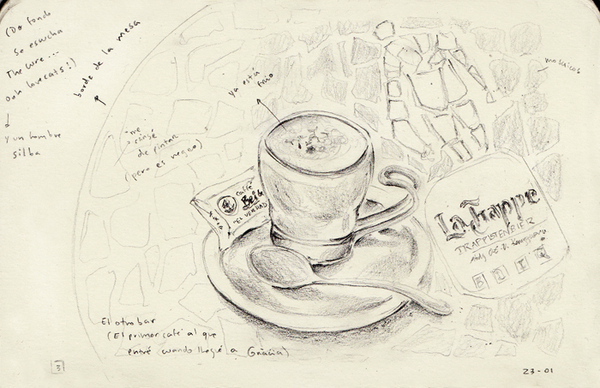 (De fondo
se escucha
The cure...
Ooh lovecats!)
y un hombre
silba
borde de la mesa
ya está
frío
mosaicos
me
cansé
de pintar
(pero es negro)
Café
BeiG
"EL VERDAD
La Trappe
TRAPPISTENBIER
El otro bar
(El primer café al que
entré cuando llegué a Gràcia)
3
23-01